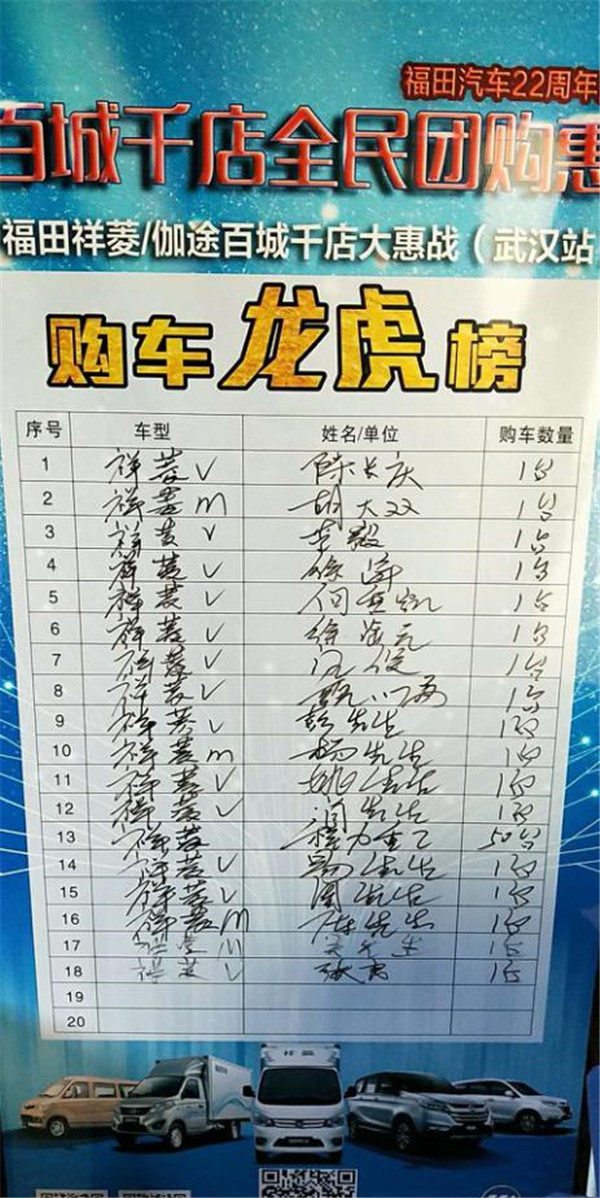 福田汽车22周年
百城千店全民团购惠
福田祥菱/伽途百城千店大惠战（武汉站
购车龙虎榜
序号 车型 姓名/单位 购车数量
1 祥菱V 陈长庆 1台
2 祥菱M 胡大双 1台
3 祥菱V 1台
4 祥菱V 1台
5 祥菱V 1台
6 祥菱V 1台
7 祥菱V 1台
8 祥菱V 1台
9 祥菱V 彭先生 1台
10 祥菱M 杨先生 1台
11 祥菱V 姚先生 1台
12 祥菱V 先生 1台
13 祥菱 50台
14 祥菱V 先生 1台
15 祥菱V 周先生 1台
16 祥菱M 陈先生 1台
17 祥菱M 先生 1台
18 祥菱V 1台
19
20